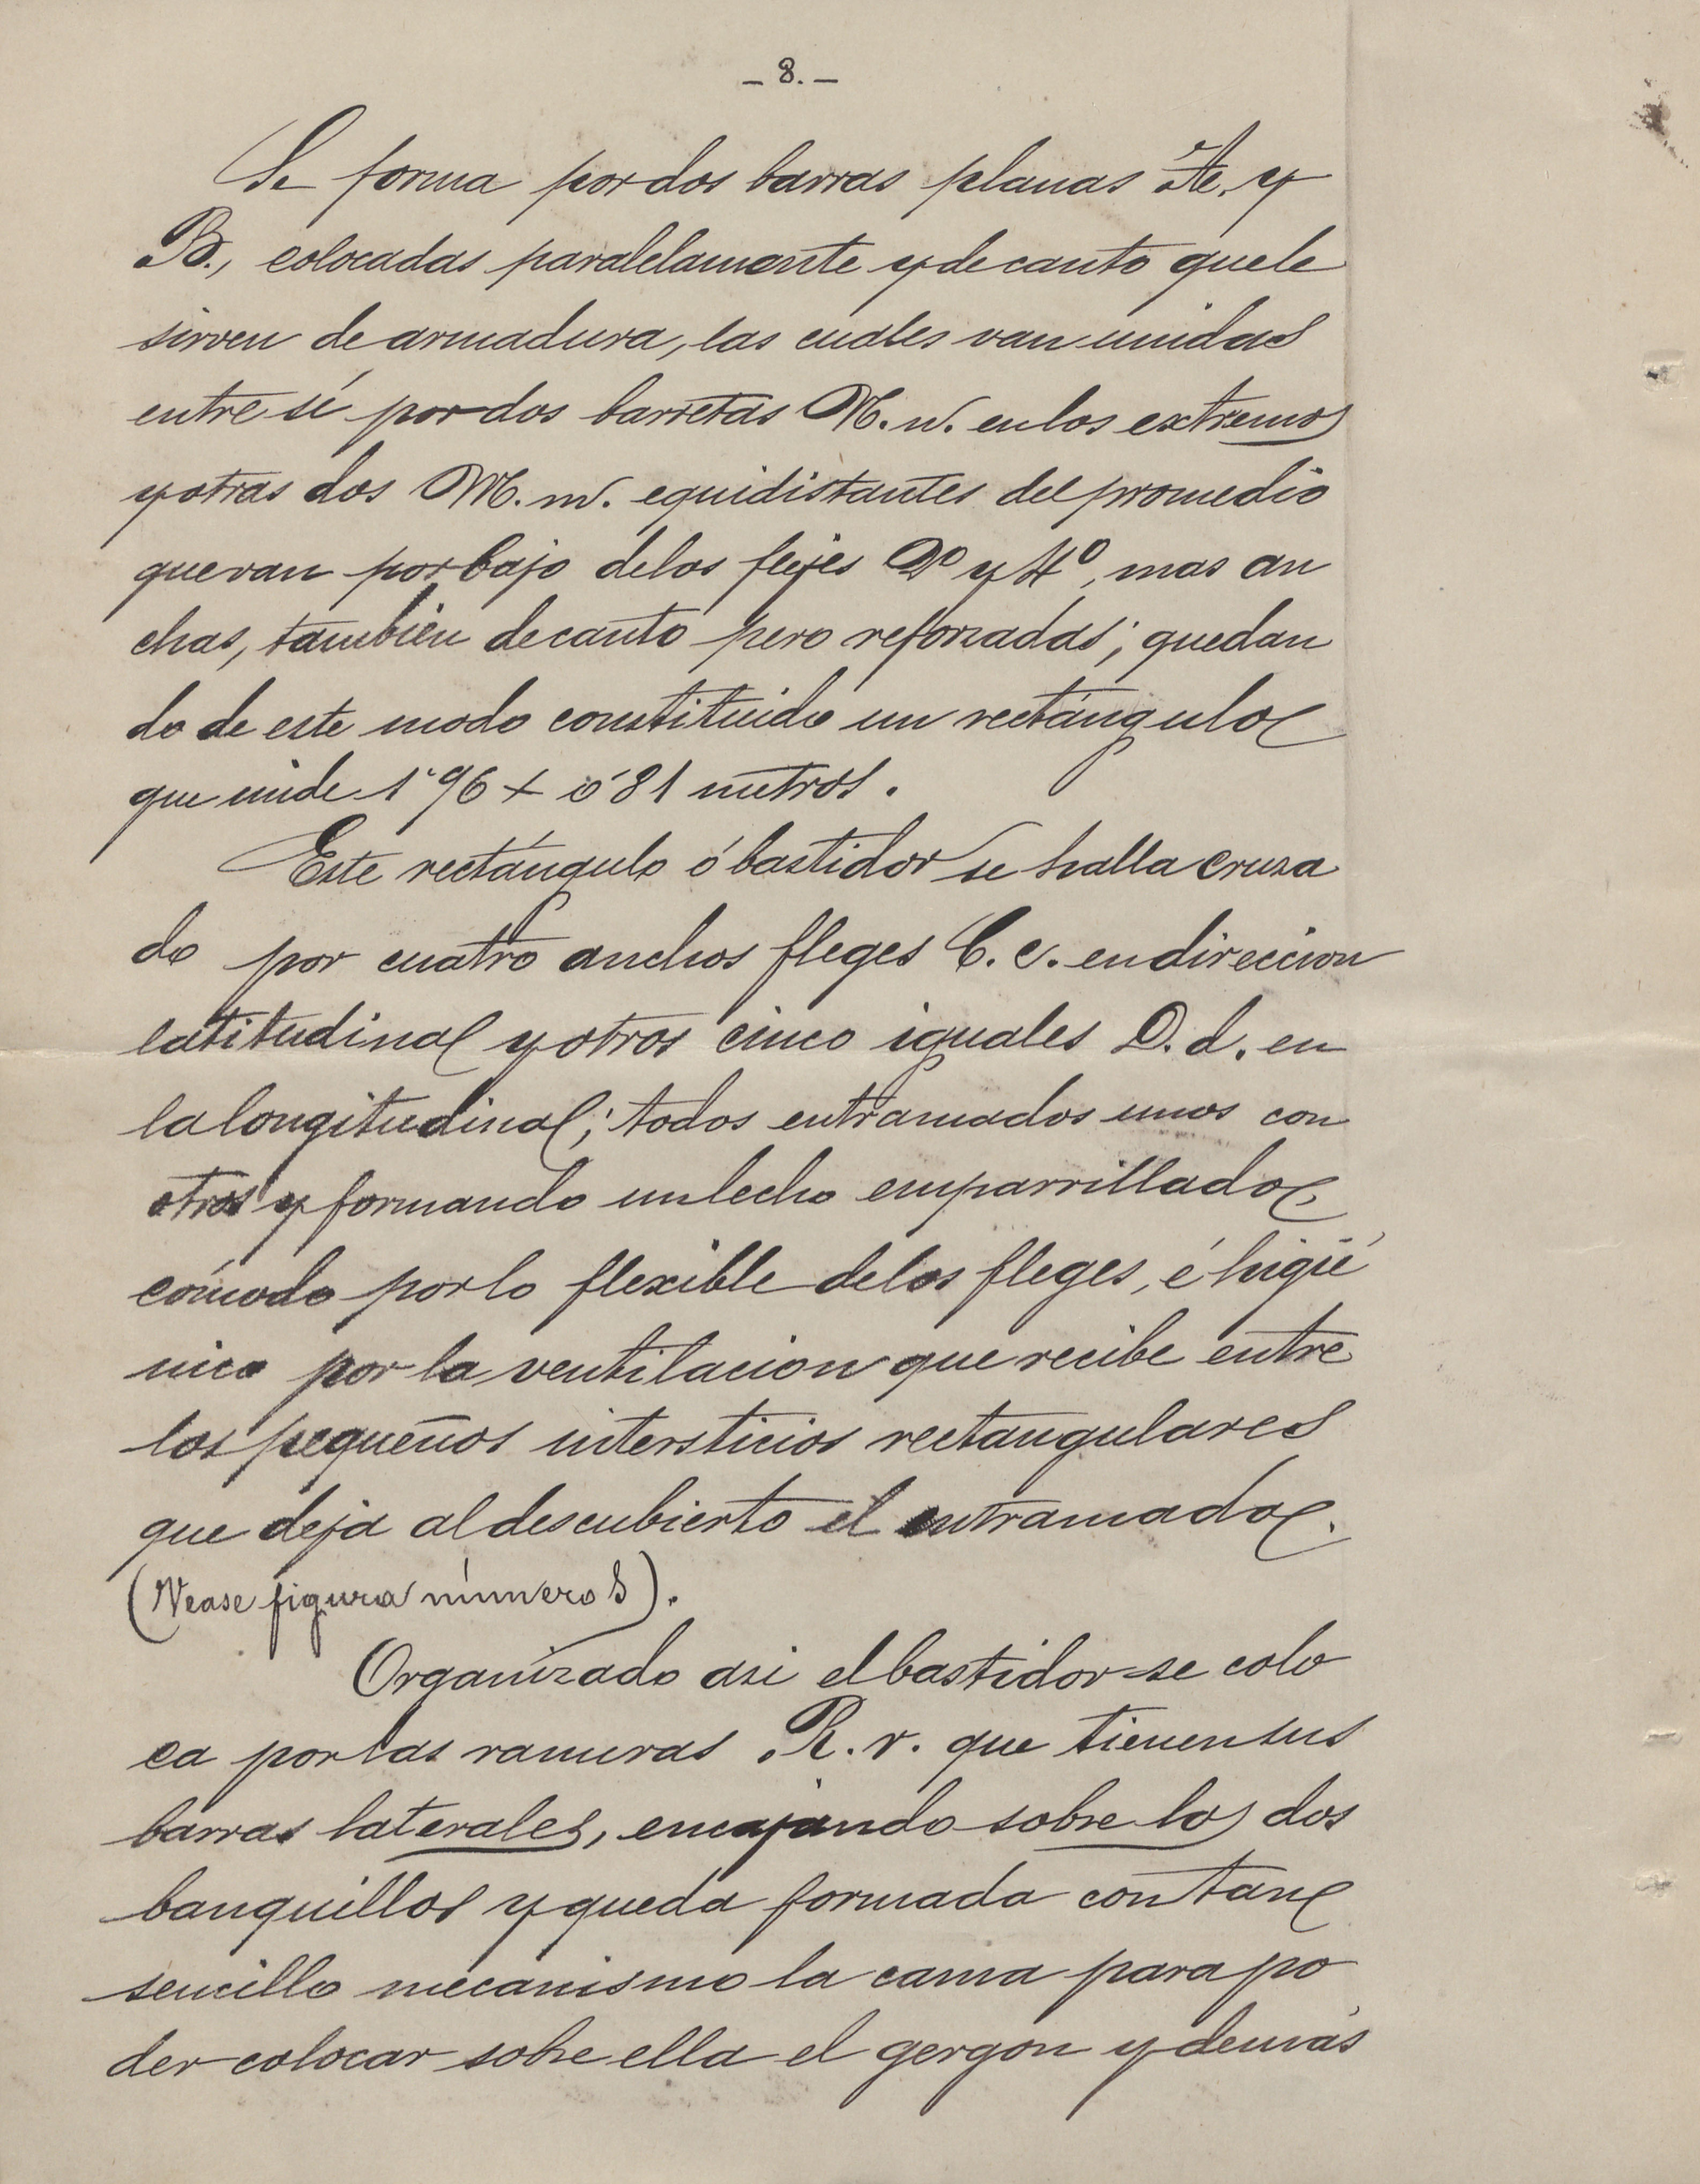 - 8. -
Se forma por dos barras planas A. y
B., colocadas paralelamente y de canto que le
sirven de armadura, las cuales van unidas
entre sí por dos barretas N. n. en los extremos
y otras dos M. m. equidistantes del promedio
que van por bajo de los flejes 2º y 4º, mas an
chas, también de canto pero reforzadas; quedan
do de este modo constituido un rectángulo
que mide 1'96 x 0'81 metros.
Este rectángulo ó bastidor se halla cruza
do por cuatro anchos fleges C. c. en direccion
latitudinal y otros cinco iguales D. d. en
la longitudinal; todos entramados unos con
otros y formando un lecho emparrillado,
cómodo por lo flexible de los fleges, é higié
nico por la ventilacion que recibe entre
los pequeños intersticios rectangulares
que deja al descubierto el entramado.
(Vease figura número 5).
Organizado asi el bastidor se colo
ca por las ranuras R. r. que tienen sus
barras laterales, encajando sobre los dos
banquillos y queda formada con tan
sencillo mecanismo la cama para po
der colocar sobre ella el gergon y demás